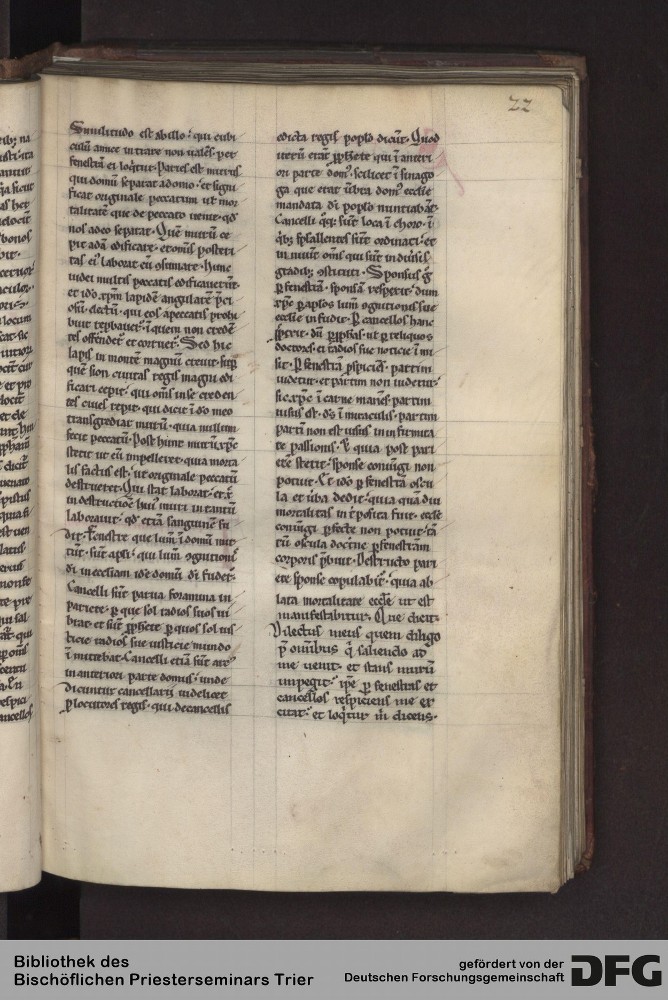 22
Similitudo est ab illo · qui cubi
culū amice intrare non valēs per
fenestrā ei loq̄tur · Paries est murus
qui domū separat a domo · et signi
ficat originale peccatum ul' mor
talitatē que de peccato uenit · qđ
nos a deo separat · Quē murū ce
pit adā edificare · et om̄is posteri
tas ei' laborat eū
iudei multis peccatis edificauerūt ·
et id'o xp̄m lapidē angularē p̄ci
osū · electū · qui eos a peccatis prohi
buit reprobauer̄t · in quem non credē
tes offender̄t et corruer̄t · Sed hic
lapis in montē magnū creuit · suꝑ
quē sion ciuitas regis magni edi
ficari cepit · qui om̄s in se creden
tes ciues cepit · qui dicit ī dō meo
transgrediar murū · quia nullum
fecit peccatū · Post hunc murū xp̄c
stetit ut eū impelleret · quia morta
lis factus est · ut originale peccatū
destrueret · Qui stat laborat · et xp̄c
in destructiōe hui' muri in tantū
laborauit · qđ etiā sanguinē fu
dit · Fenestre que lum̄ ī domū mit
tūt · sūt apl'i · qui lum̄ cognitionis
di in eccl'iam id'e domū di fuder̄t ·
Cancelli sūt parua foramina in
pariete · ꝑ que sol radios suos ui
brat · et sūt ꝓphete ꝑ quos sol ius
ticie radios sue iusticie mundo
īmittebat · Cancelli etiā sūt
in anteriori parte domus · unde
dicuntur cancellarii uidelicet
ꝑlocutores regis · qui de cancellis
edicta regis popl'o dicūt · Quod
uerū erāt ꝓphete qui ī anteri
ori parte dom' · scilicet ī sinago
ga que erat ūbra dom' eccl'ie
mandata di popl'o nuntiabāt ·
Cancelli q̄q; sūt loca ī choro · ī
q̄b; psallentes sūt ordinati · et
in nuūt om̄s qui sūt in diuīsis
gradib; cōstituti · Sponsus g̊
ꝑ fenestrā sponsā respexit · dum
xp̄c ꝑ aplos lum̄ cognitionis sue
eccl'ie infudit · Per cancellos hanc
ꝓspexit · dū ꝑ ꝓph̄as · ul' ꝑ reliquos
doctores · ei radios sue noticie ī mi
sit · Per fenestrā ꝓspiciēs · partim
uidetur · et partim non uidetur ·
sic xp̄c ī carne manēs · partim
uisus est · d's ī miraculis · partim
non est uisus in infirmita
te passionis · Vel quia post pari
etē stetit · sponse coniūgi non
potuit · Et id'o ꝑ fenestrā oscu
la et uerba dedit · quia quā diu
mortalitas interposita fuit · eccl'e
coniūgi ꝑfecte non potuit · tā
tū oscula doctrine ꝑ fenestram
corporis p̄buit · Destructo pari
ete sponse copulabit̄ · quia ab
lata mortalitate eccl'e ut est
manifestabitur · Que dicit ·
Dilectus meus quem diligo
p̄ omībus q̄ saliendo ad
me uenit · et stans murū
impegit · ipse ꝑ fenestras et
cancellos respiciens me ex
citat · et loq̄tur m̄ dicens ·
Bibliothek des
Bischöflichen Priesterseminars Trier
gefördert von der
Deutschen Forschungsgemeinschaft
DFG